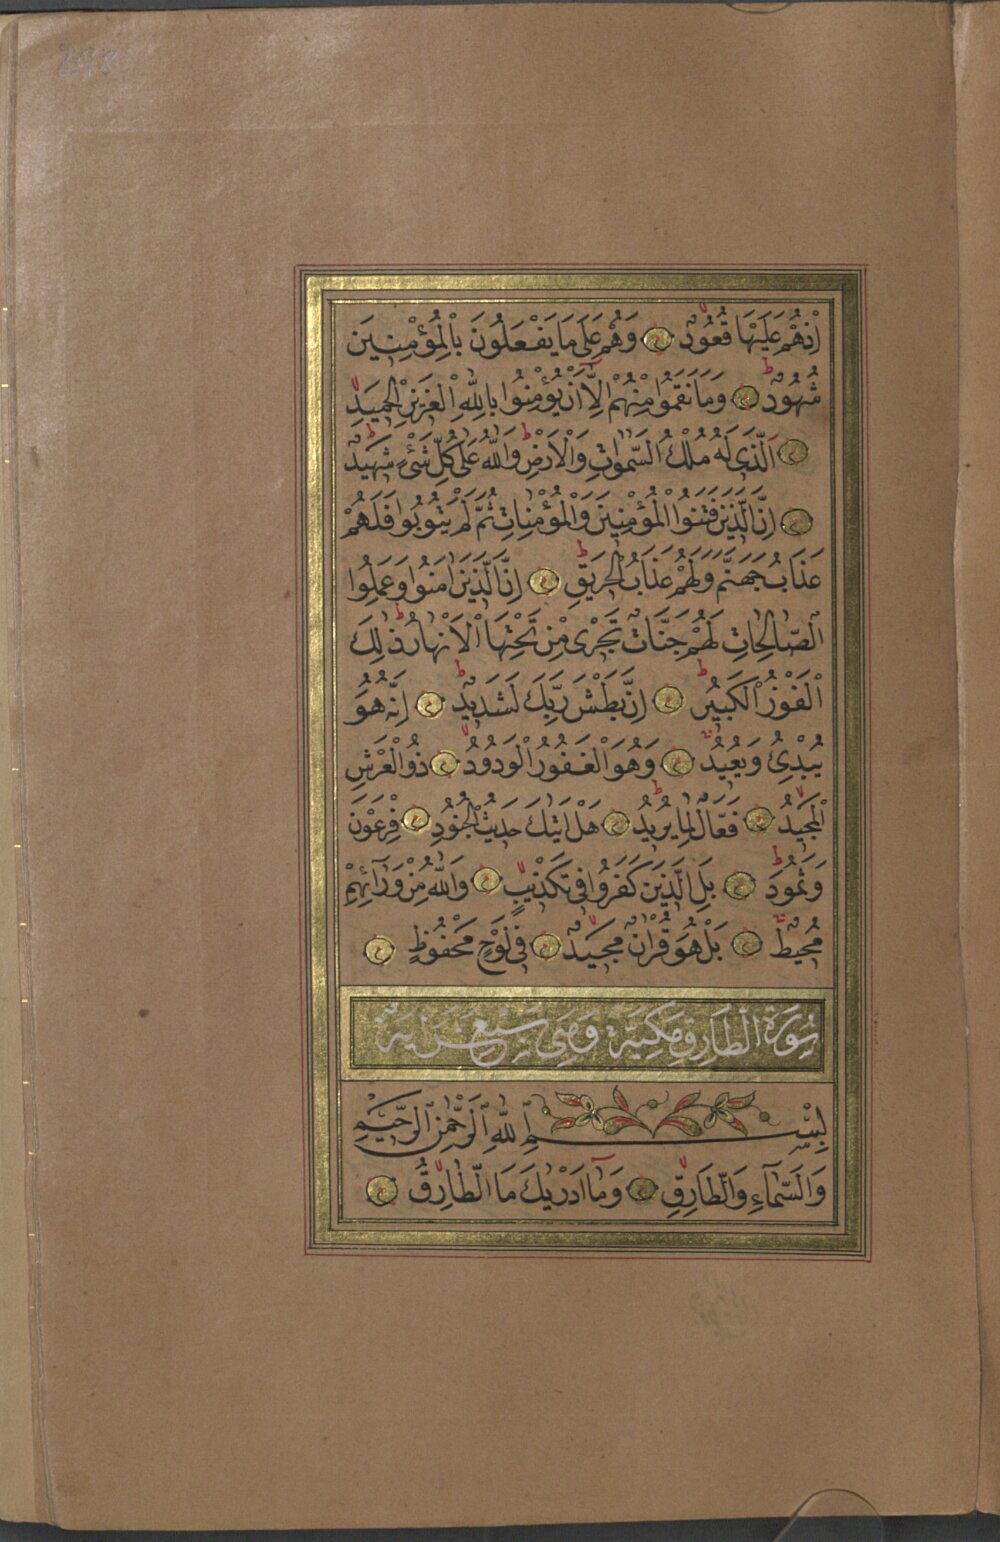 298
اِذْهُمْ عَلَيْهَا قُعُودٌ وَهُمْ عَلٰى مَا يَفْعَلُونَ بِالْمُؤْمِنِينَ
شُهُودٌ وَمَا نَقَمُوا مِنْهُمْ اِلَّا اَنْ يُؤْمِنُوا بِاللّٰهِ الْعَزِيزِ الْحَمِيدِ
اَلَّذِى لَهُ مُلْكُ السَّمٰوَاتِ وَالْاَرْضِ وَاللّٰهُ عَلٰى كُلِّ شَىْءٍ شَهِيدٌ
اِنَّ الَّذِينَ فَتَنُوا الْمُؤْمِنِينَ وَالْمُؤْمِنَاتِ ثُمَّ لَمْ يَتُوبُوا فَلَهُمْ
عَذَابُ جَهَنَّمَ وَلَهُمْ عَذَابُ الْحَرِيقِ اِنَّ الَّذِينَ اٰمَنُوا وَعَمِلُوا
الصَّالِحَاتِ لَهُمْ جَنَّاتٌ تَجْرِى مِنْ تَحْتِهَا الْاَنْهَارُ ذٰلِكَ
الْفَوْزُ الْكَبِيرُ اِنَّ بَطْشَ رَبِّكَ لَشَدِيدٌ اِنَّهُ هُوَ
يُبْدِئُ وَيُعِيدُ وَهُوَ الْغَفُورُ الْوَدُودُ ذُو الْعَرْشِ
الْمَجِيدُ فَعَّالٌ لِمَا يُرِيدُ هَلْ اَتٰيكَ حَدِيثُ الْجُنُودِ فِرْعَوْنَ
وَثَمُودَ بَلِ الَّذِينَ كَفَرُوا فِى تَكْذِيبٍ وَاللّٰهُ مِنْ وَرَائِهِمْ
مُحِيطٌ بَلْ هُوَ قُرْاٰنٌ مَجِيدٌ فِى لَوْحٍ مَحْفُوظٍ
سُورَةُ الطَّارِقِ مَكِّيَّةٌ وَهِىَ سَبْعَ عَشَرَ اٰيَةً
بِسْمِ اللّٰهِ الرَّحْمٰنِ الرَّحِيمِ
وَالسَّمَاءِ وَالطَّارِقِ وَمَا اَدْرٰيكَ مَا الطَّارِقُ